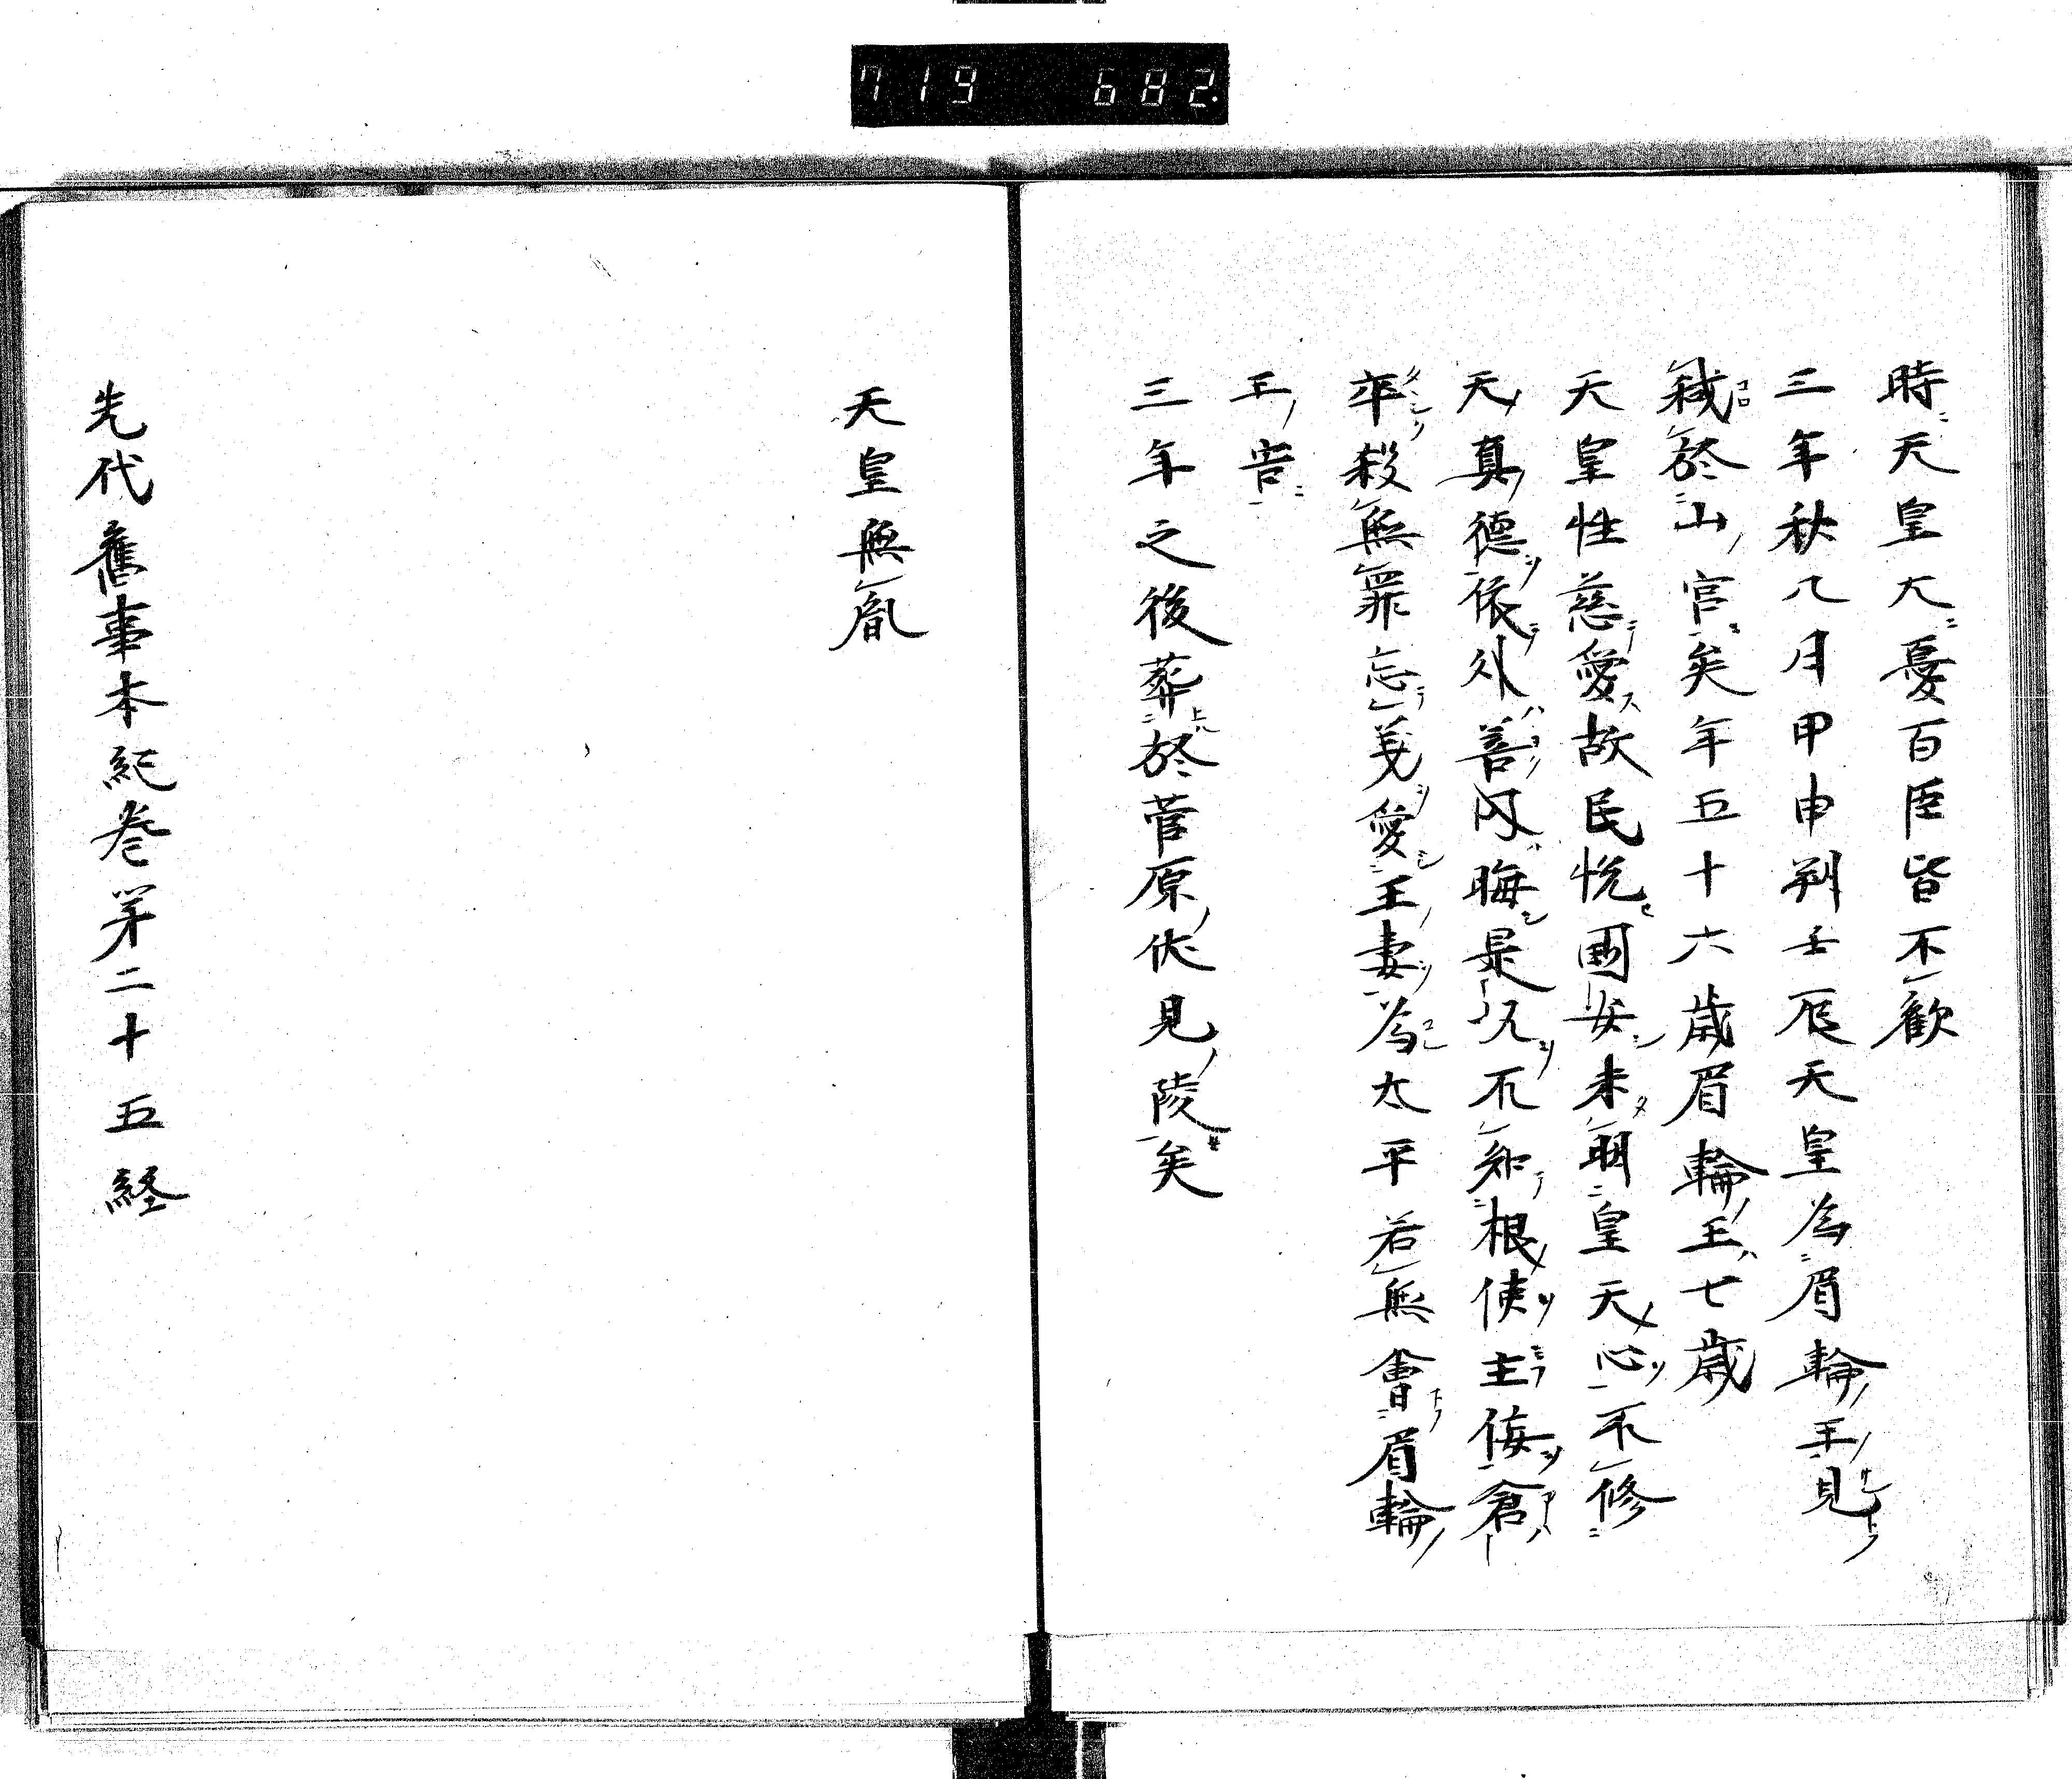 719 682
時天皇大憂百臣皆不歓
三年秋八月甲申朔壬辰天皇為眉輪王見
弑於山宮矣年五十六歳眉輪王七歳
天皇性慈愛故民悦國安未明皇天心不修
天真徳依外善内晦是以不知根使主侮倉
卒殺無罪忘義愛王妻為太平若無會眉輪
王害
三年之後葬於菅原伏見陵矣
天皇無胤
先代舊事本紀巻第二十五経